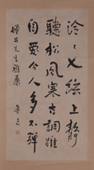 泠〻七絃上靜
聽松風寒古調雖
自愛今人多不彈
先生雅